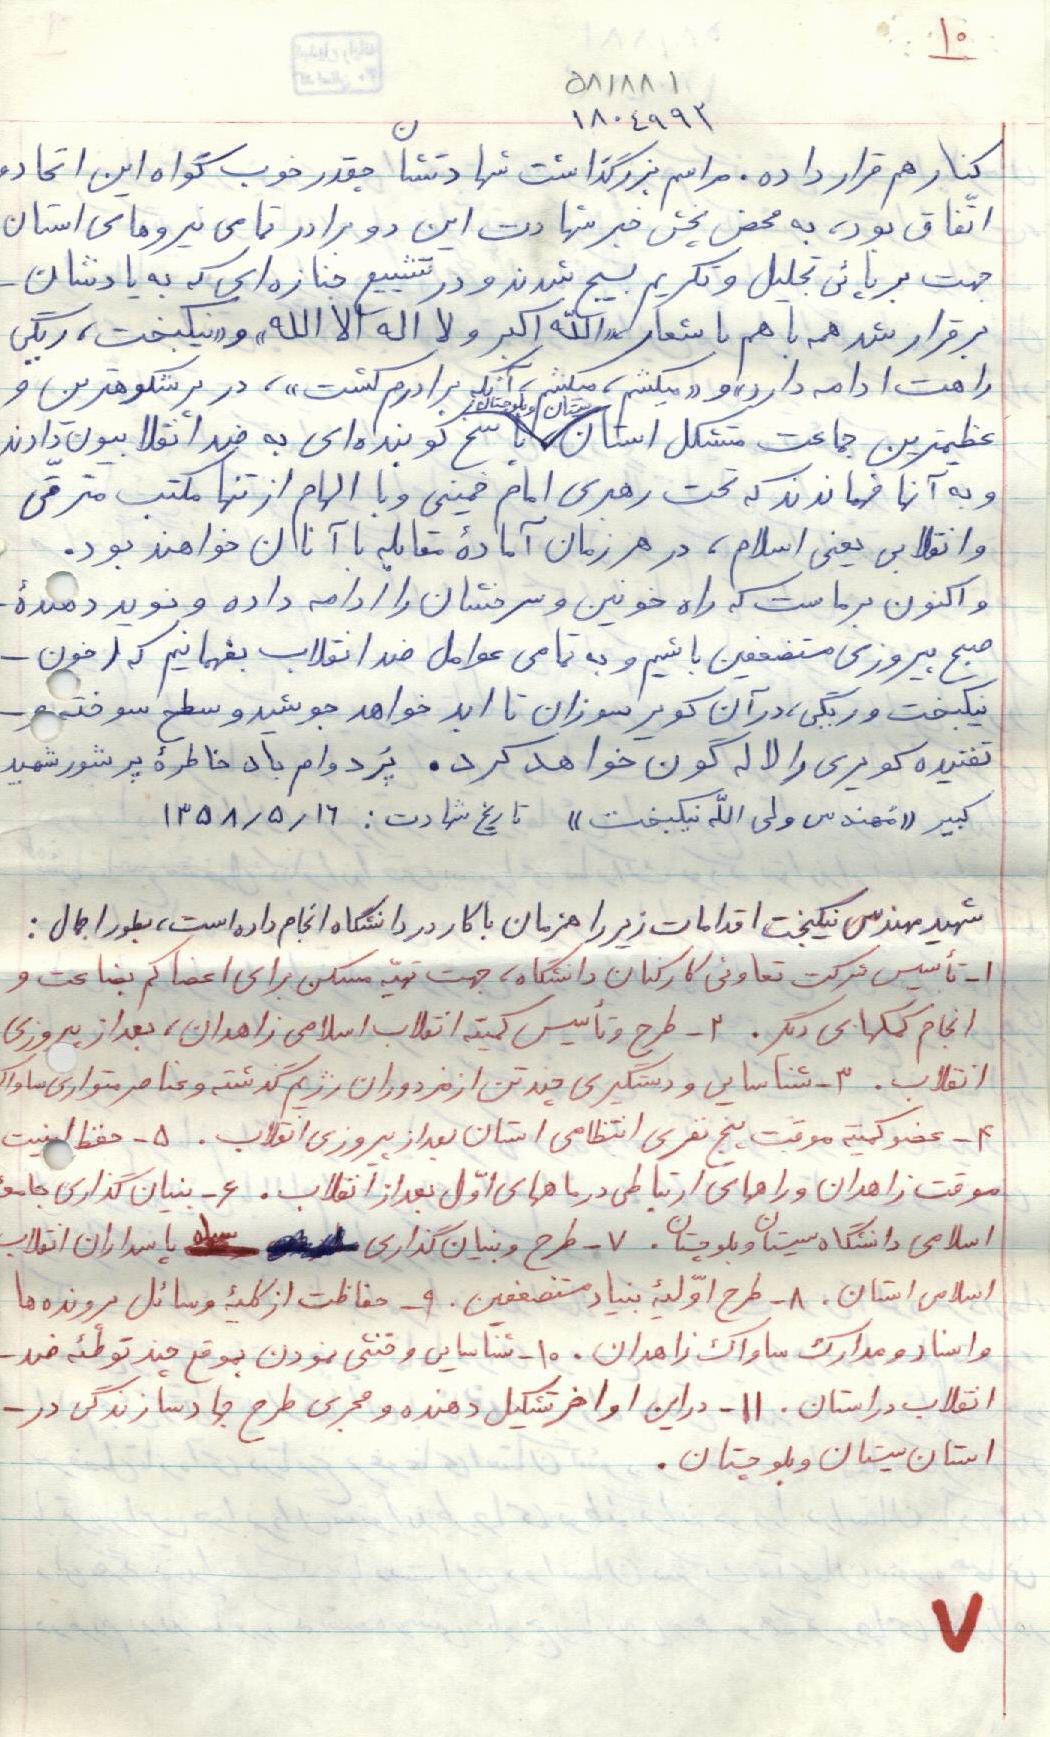 ۱۰
۵۸/۸۸۰۱
۱۸۰٤۹۹۲
کنار هم قرار داده. مراسم بزرگذاشت شهادتشان چقدر خوب گواه این اتحاد و
اتّفاق بود، به محض پخش خبر شهادت این دو برادر تمامی نیروهای استان
جهت برپائی تجلیل و تکریم بسیج شدند و در تشییع جنازه‌ای که به یادشان -
برقرار شد همه با هم با شعار «اللّه اکبر و لا اله الا الله» و «نیکبخت، ریگی
راهت ادامه دارد» و «میکشم، میکشم، آنکه برادرم کشت»، در پرشکوهترین و
عظیمترین جماعت متشکل استان سیستان و بلوچستان پاسخ کوبنده‌ای به ضد انقلابیون دادند
و به آنها فهماندند که تحت رهبری امام خمینی و با الهام از تنها مکتب مترقّی
و انقلابی یعنی اسلام، در هر زمان آمادهٔ مقابله با آنان خواهند بود.
و اکنون بر ماست که راه خونین و سرخشان را ادامه داده و نوید دهندهٔ -
صبح پیروزی مستضعفین باشیم و به تمامی عوامل ضد انقلاب بفهمانیم که خون -
نیکبخت و ریگی، در آن کویر سوزان تا ابد خواهد جوشید و سطح سوخته و -
تفتیده کویری را لاله گون خواهد کرد. پُر دوام باد خاطرهٔ پر شور شهید
کبیر «مهندس ولی اللّه نیکبخت» تاریخ شهادت: ۱۳۵۸/۵/۱٦
شهید مهندس نیکبخت اقدامات زیر را همزمان با کار در دانشگاه انجام داده است، بطور اجمال:
۱- تأسیس شرکت تعاونی کارکنان دانشگاه، جهت تهیّه مسکن برای اعضا کم بضاعت و
انجام کمکهای دیگر. ۲- طرح و تأسیس کمیته انقلاب اسلامی زاهدان، بعد از پیروزی
انقلاب. ۳- شناسایی و دستگیری چند تن از دوران رژیم گذشته و عناصر متواری ساواک
۴- عضو کمیته موقت پنج نفری انتظامی استان بعد از پیروزی انقلاب. ۵- حفظ امنیت
موقت زاهدان و راههای ارتباطی در ماههای اوّل بعد از انقلاب. ۶- بنیان گذاری جامعه
اسلامی دانشگاه سیستان و بلوچستان. ۷- طرح و بنیان گذاری سپاه پاسداران انقلاب
اسلامی استان. ۸- طرح اوّلیهٔ بنیاد مستضعفین. ۹- حفاظت از کلیهٔ وسائل پرونده ها
و اسناد و مدارک ساواک زاهدان. ۱۰- شناسایی و خنثی نمودن بموقع چند توطئه ضد -
انقلاب در استان. ۱۱- در این اواخر تشکیل دهنده و مجری طرح جهاد سازندگی در -
استان سیستان و بلوچستان.
۷